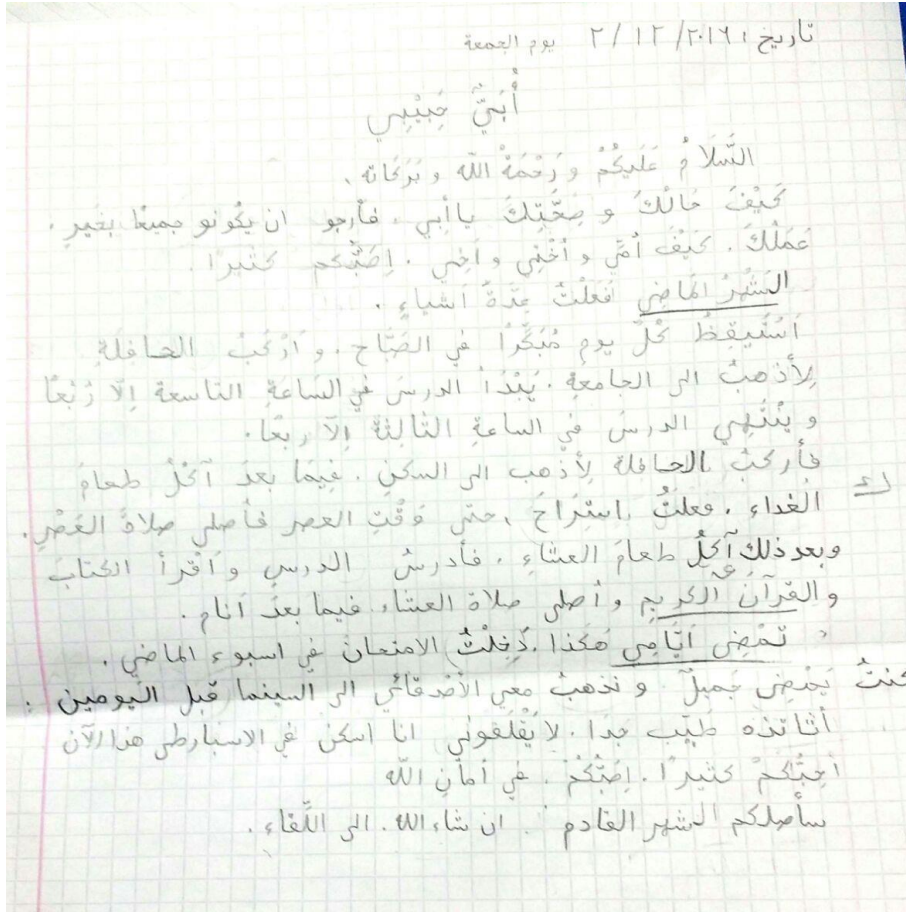 تاريخ : ٢٠١٦/ ١٢ / ٢ يوم الجمعة
أُبَيَّ حَبِيْبِي
السَّلَامُ عَلَيكُمْ وَ رَحْمَةُ اللّه وَ بَرَكَاته .
كَيْفَ حَالُكَ وَ صِحَّتِكَ يا أبي . فأرجو ان يكونو جميعًا بخير .
عَمَلُكَ . كَيْفَ أُمّي و أخْتِي و أخِي . اِحَبُّكم كثيرًا .
الشَهْرُ الماضِي فَعَلْتُ عِدّةُ أشياءٍ .
اَسْتَيقِظُ كُلّ يوم مُبَكّرًا في الصَّبَاحِ . و اَرْكَبُ الحافلةِ
لِأذهبُ الى الجامعةِ . يَبْدَأ الدرسَ في السَاعةِ التاسعة اِلّا رُبْعًا
و يَنْتَهِي الدرسَ في الساعةِ الثّالِثَة اِلّا ربعًا .
فأركبُ الحافلة لِأذهب الى السكنِ . فِيمَا بعدَ آكُلُ طعامَ
الغداء . فعلتُ اِستِرَاحَ ، حتى وَقْتِ العصر فأصلي صلاةُ العَصْرِ .
و بعد ذلك آكُلُ طعامَ العشاءِ . فأدرسُ الدرسِ و اَقْرأ الكتابَ
و القرآنَ الكريمِ و أصلي صلاة العشاء . فيما بعدَ اَنام .
تَمْضِى اَيّامِي هَكذا . دَخِلْتُ الامتحان في اسبوء الماضي .
كنتُ يَمْضِي جَمِيلٌ و نذهبُ معي الأصْدقائي الى السينما قبل اليومين .
أثاتذه طيّب جدا . لا يَقْلِقوني انا اسكن في الاسبارطى هذا الآن
اُحِبُّكمْ كثيرًا . اِحَبُّكُمْ . في أمانِ اللّه
سأصلكم الشهر القادم ان شاء الله . الى اللّقاءِ .